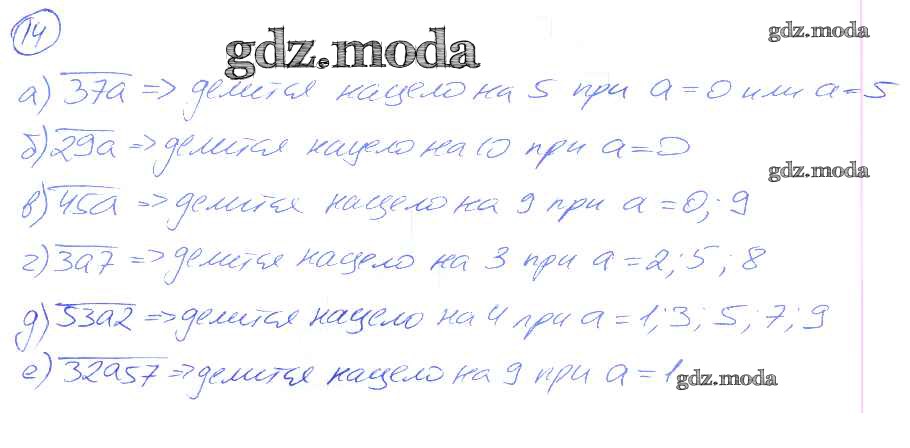 14
gdz.moda
gdz.moda
а) 37a => делится нацело на 5 при a = 0 или a = 5
б) 29a => делится нацело на 10 при a = 0
gdz.moda
в) 45a => делится нацело на 9 при a = 0; 9
г) 3a7 => делится нацело на 3 при a = 2; 5; 8
д) 53a2 => делится нацело на 4 при a = 1; 3; 5; 7; 9
е) 32a57 => делится нацело на 9 при a = 1
gdz.moda